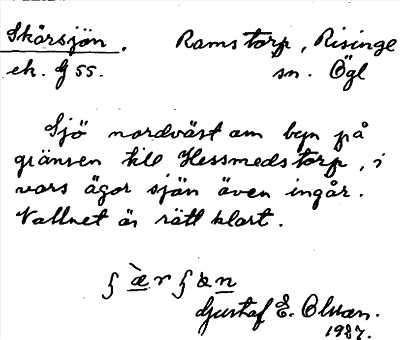 Skärsjön. Ramstorp, Risinge
ek. G 55. sn. Ögl
Sjö nordväst om byn på
gränsen till Hessmedstorp, i
vars ägor sjön även ingår.
Vattnet är rätt klart.
Gustaf E. Olsson.
1987.